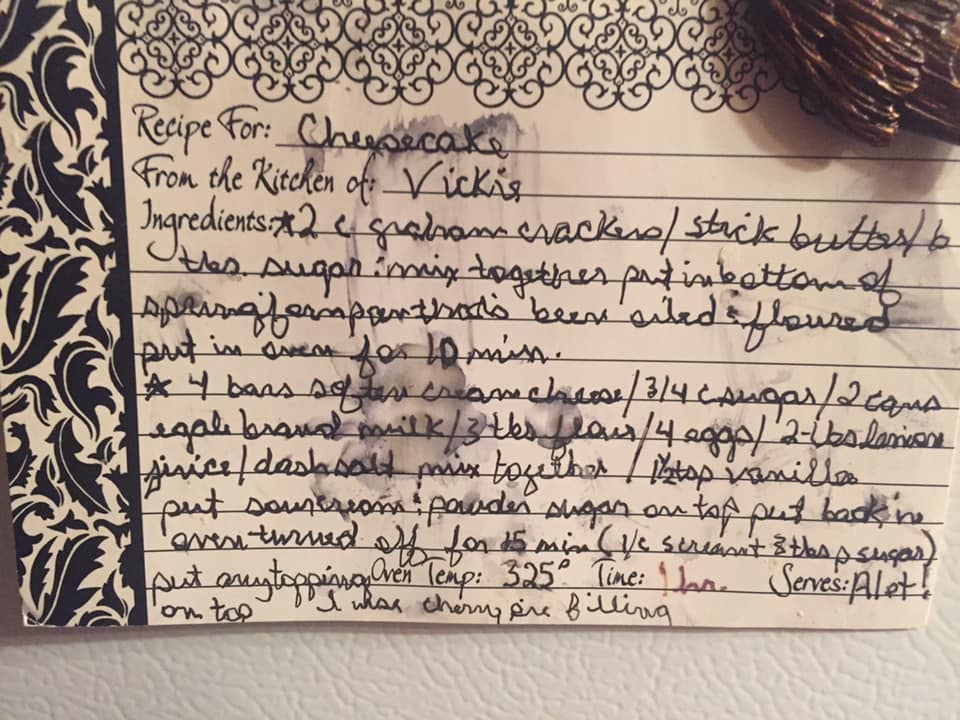 Recipe For: Cheesecake
From the Kitchen of: Vickis
Ingredients: *2 c. graham crackers / stick butter / 6
tbs. sugar: mix together put in bottom of
springform pan thats been oiled & floured
put in oven for 10 min.
* 4 bars soften cream cheese / 3/4 c sugar / 2 cans
egale brand milk / 3 tbs flour / 4 eggs / 2-tbs lemon
juice / dash salt mix together / 1½ tsp vanilla
put sourcream & powder sugar on top put back in
oven-turned off for 15 min (1/c scream & 3 tbs p sugar)
put any topping Oven Temp: 325° Time: 1 hr. Serves: Alot!
on top I use cherry pie filling